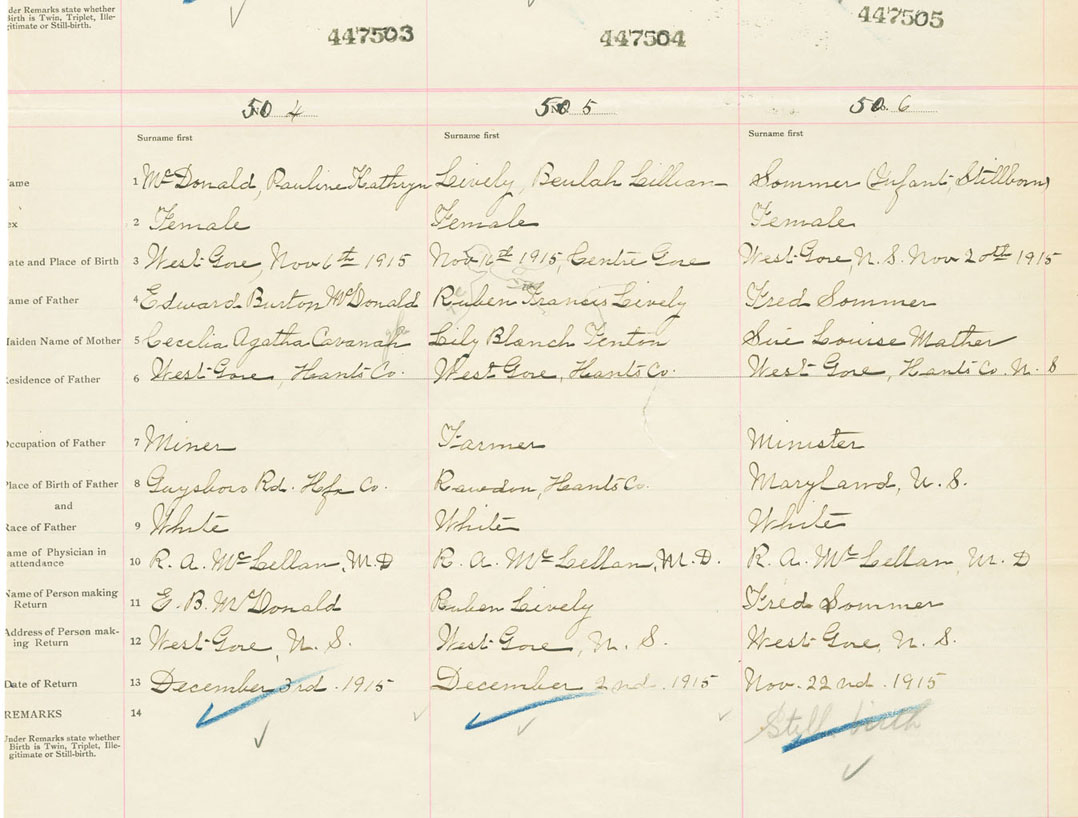 nder Remarks state whether
Birth is Twin, Triplet, Ille-
gitimate or Still-birth.
447503 447504 447505
50 4 50 5 50 6
Surname first Surname first Surname first
ame 1 McDonald, Pauline Kathryn Lively, Beulah Lillian Sommer (Infant, Stillborn)
ex 2 Female Female Female
ate and Place of Birth 3 West Gore, Nov 6th 1915 Nov 16th 1915, Centre Gore West Gore, N.S. Nov 20th 1915
ame of Father 4 Edward Burton McDonald Ruben Francis Lively Fred Sommer
aiden Name of Mother 5 Cecelia Agatha Cavanah Lily Blanch Fenton Sue Louise Mather
esidence of Father 6 West Gore, Hants Co. West Gore, Hants Co. West Gore, Hants Co. N. S
ccupation of Father 7 Miner Farmer Minister
lace of Birth of Father 8 Guysboro Rd. Hfx Co. Rawdon, Hants Co. Maryland, U. S.
and
Race of Father 9 White White White
ame of Physician in
attendance 10 R. A. McLellan, M.D R. A. McLellan, M.D. R. A. McLellan, M. D
Name of Person making
Return 11 E. B. McDonald Ruben Lively Fred Sommer
Address of Person mak-
ing Return 12 West Gore, N. S. West Gore, N. S. West Gore, N. S.
Date of Return 13 December 3rd. 1915 December 2nd. 1915 Nov. 22nd. 1915
REMARKS 14 Still birth
Under Remarks state whether
Birth is Twin, Triplet, Ille-
gitimate or Still-birth.